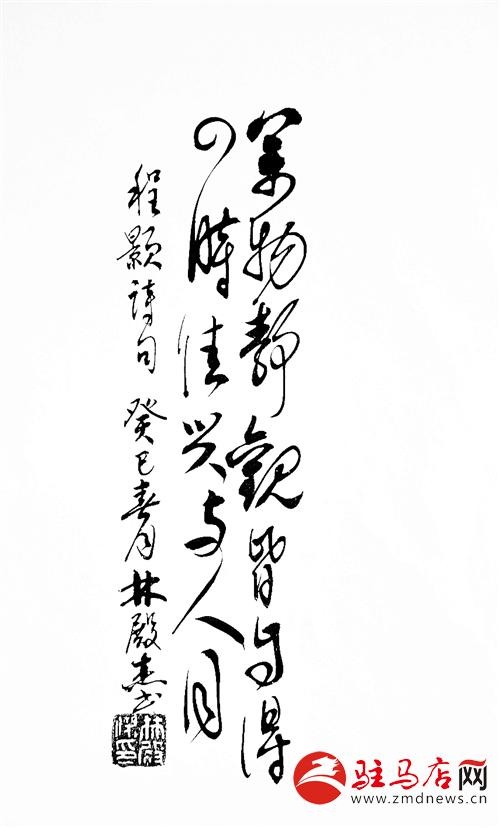 萬物靜觀皆自得
四時佳兴与人同
程颢詩句 癸巳春月 林殿杰书
林殿杰印
驻马店网
www.zmdnews.cn